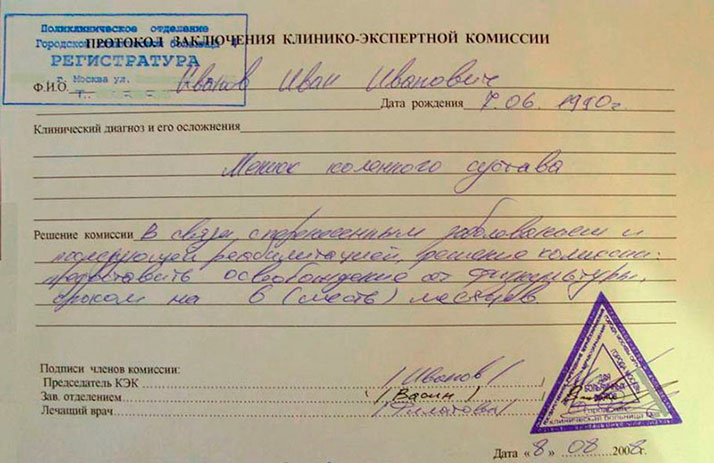 Поликлиническое отделение
Городской больницы
РЕГИСТРАТУРА
г. Москва ул.
ПРОТОКОЛ ЗАКЛЮЧЕНИЯ КЛИНИКО-ЭКСПЕРТНОЙ КОМИССИИ
Ф.И.О. Иванов Иван Иванович
Дата рождения 7.06 1990г.
Клинический диагноз и его осложнения
Мениск коленного сустава
Решение комиссии В связи с перенесенным заболеванием и
последующей реабилитацией, решение комиссии:
предоставить освобождение от физкультуры,
сроком на 6 (шесть) месяцев.
Подписи членов комиссии:
Председатель КЭК /Иванов/
Зав. отделением /Васин/
Лечащий врач /Филатова/
ДЛЯ
БОЛЬНИЧНЫХ
ЛИСТОВ
ГОРОДА МОСКВЫ
КЛИНИЧЕСКАЯ БОЛЬНИЦА
Дата «8» 08 2008г.